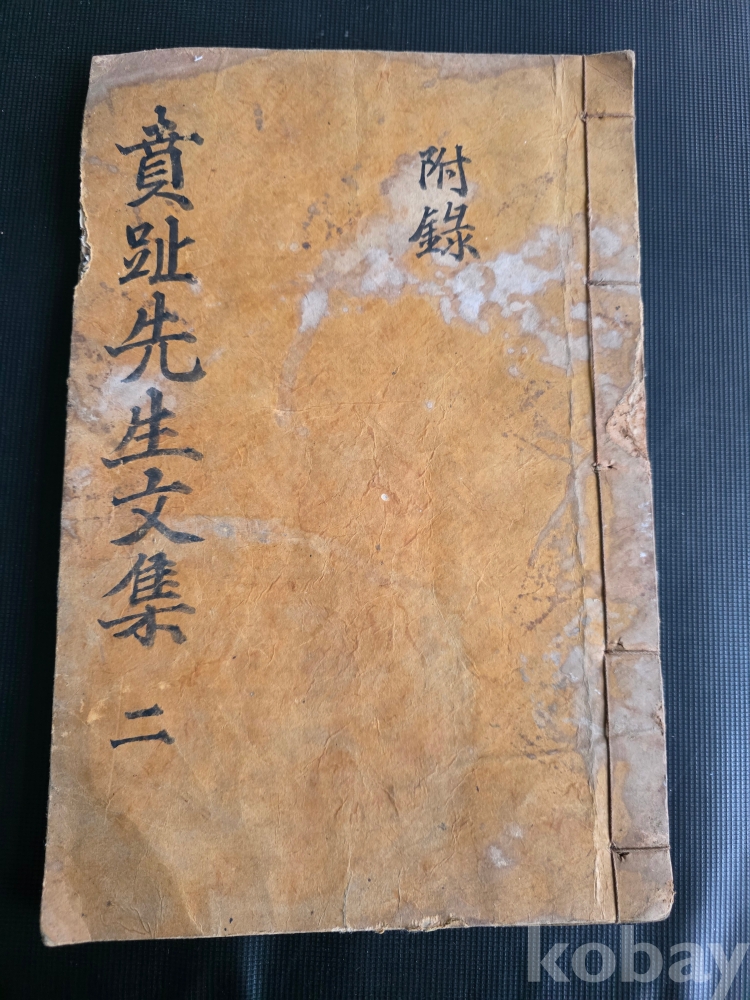 附錄
賁趾先生文集 二
kobay